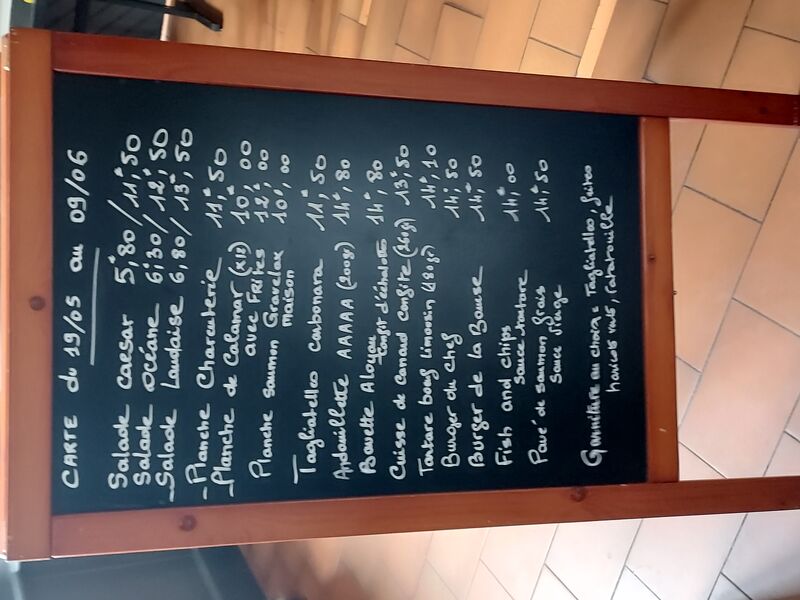 CARTE du 19/05 au 09/06
Salade caesar 5€,80 / 11€,50
Salade océane 6,30 / 12€,50
- Salade Landaise 6,80 / 13€,50
- Planche Charcuterie 11€,50
- Planche de Calamar (x12) 10€,00
avec FRites 12€,00
Planche saumon Gravelax 10€,00
Maison
Tagliatelles carbonara 11€,50
Andouillette AAAAA (200gr) 14€,80
Bavette Aloyau 14€,80
confit d'échalottes
Cuisse de Canard confite (260gr) 13€,50
Tartare bœuf Limousin (180gr) 14€,10
Burger du Chef 14€,50
Burger de la Bourse 14€,50
Fish and chips 14€,00
sauce tartare
Pavé de saumon frais 14€,50
sauce vierge
Garniture au choix = Tagliatelles, frites
haricots verts, ratatouille